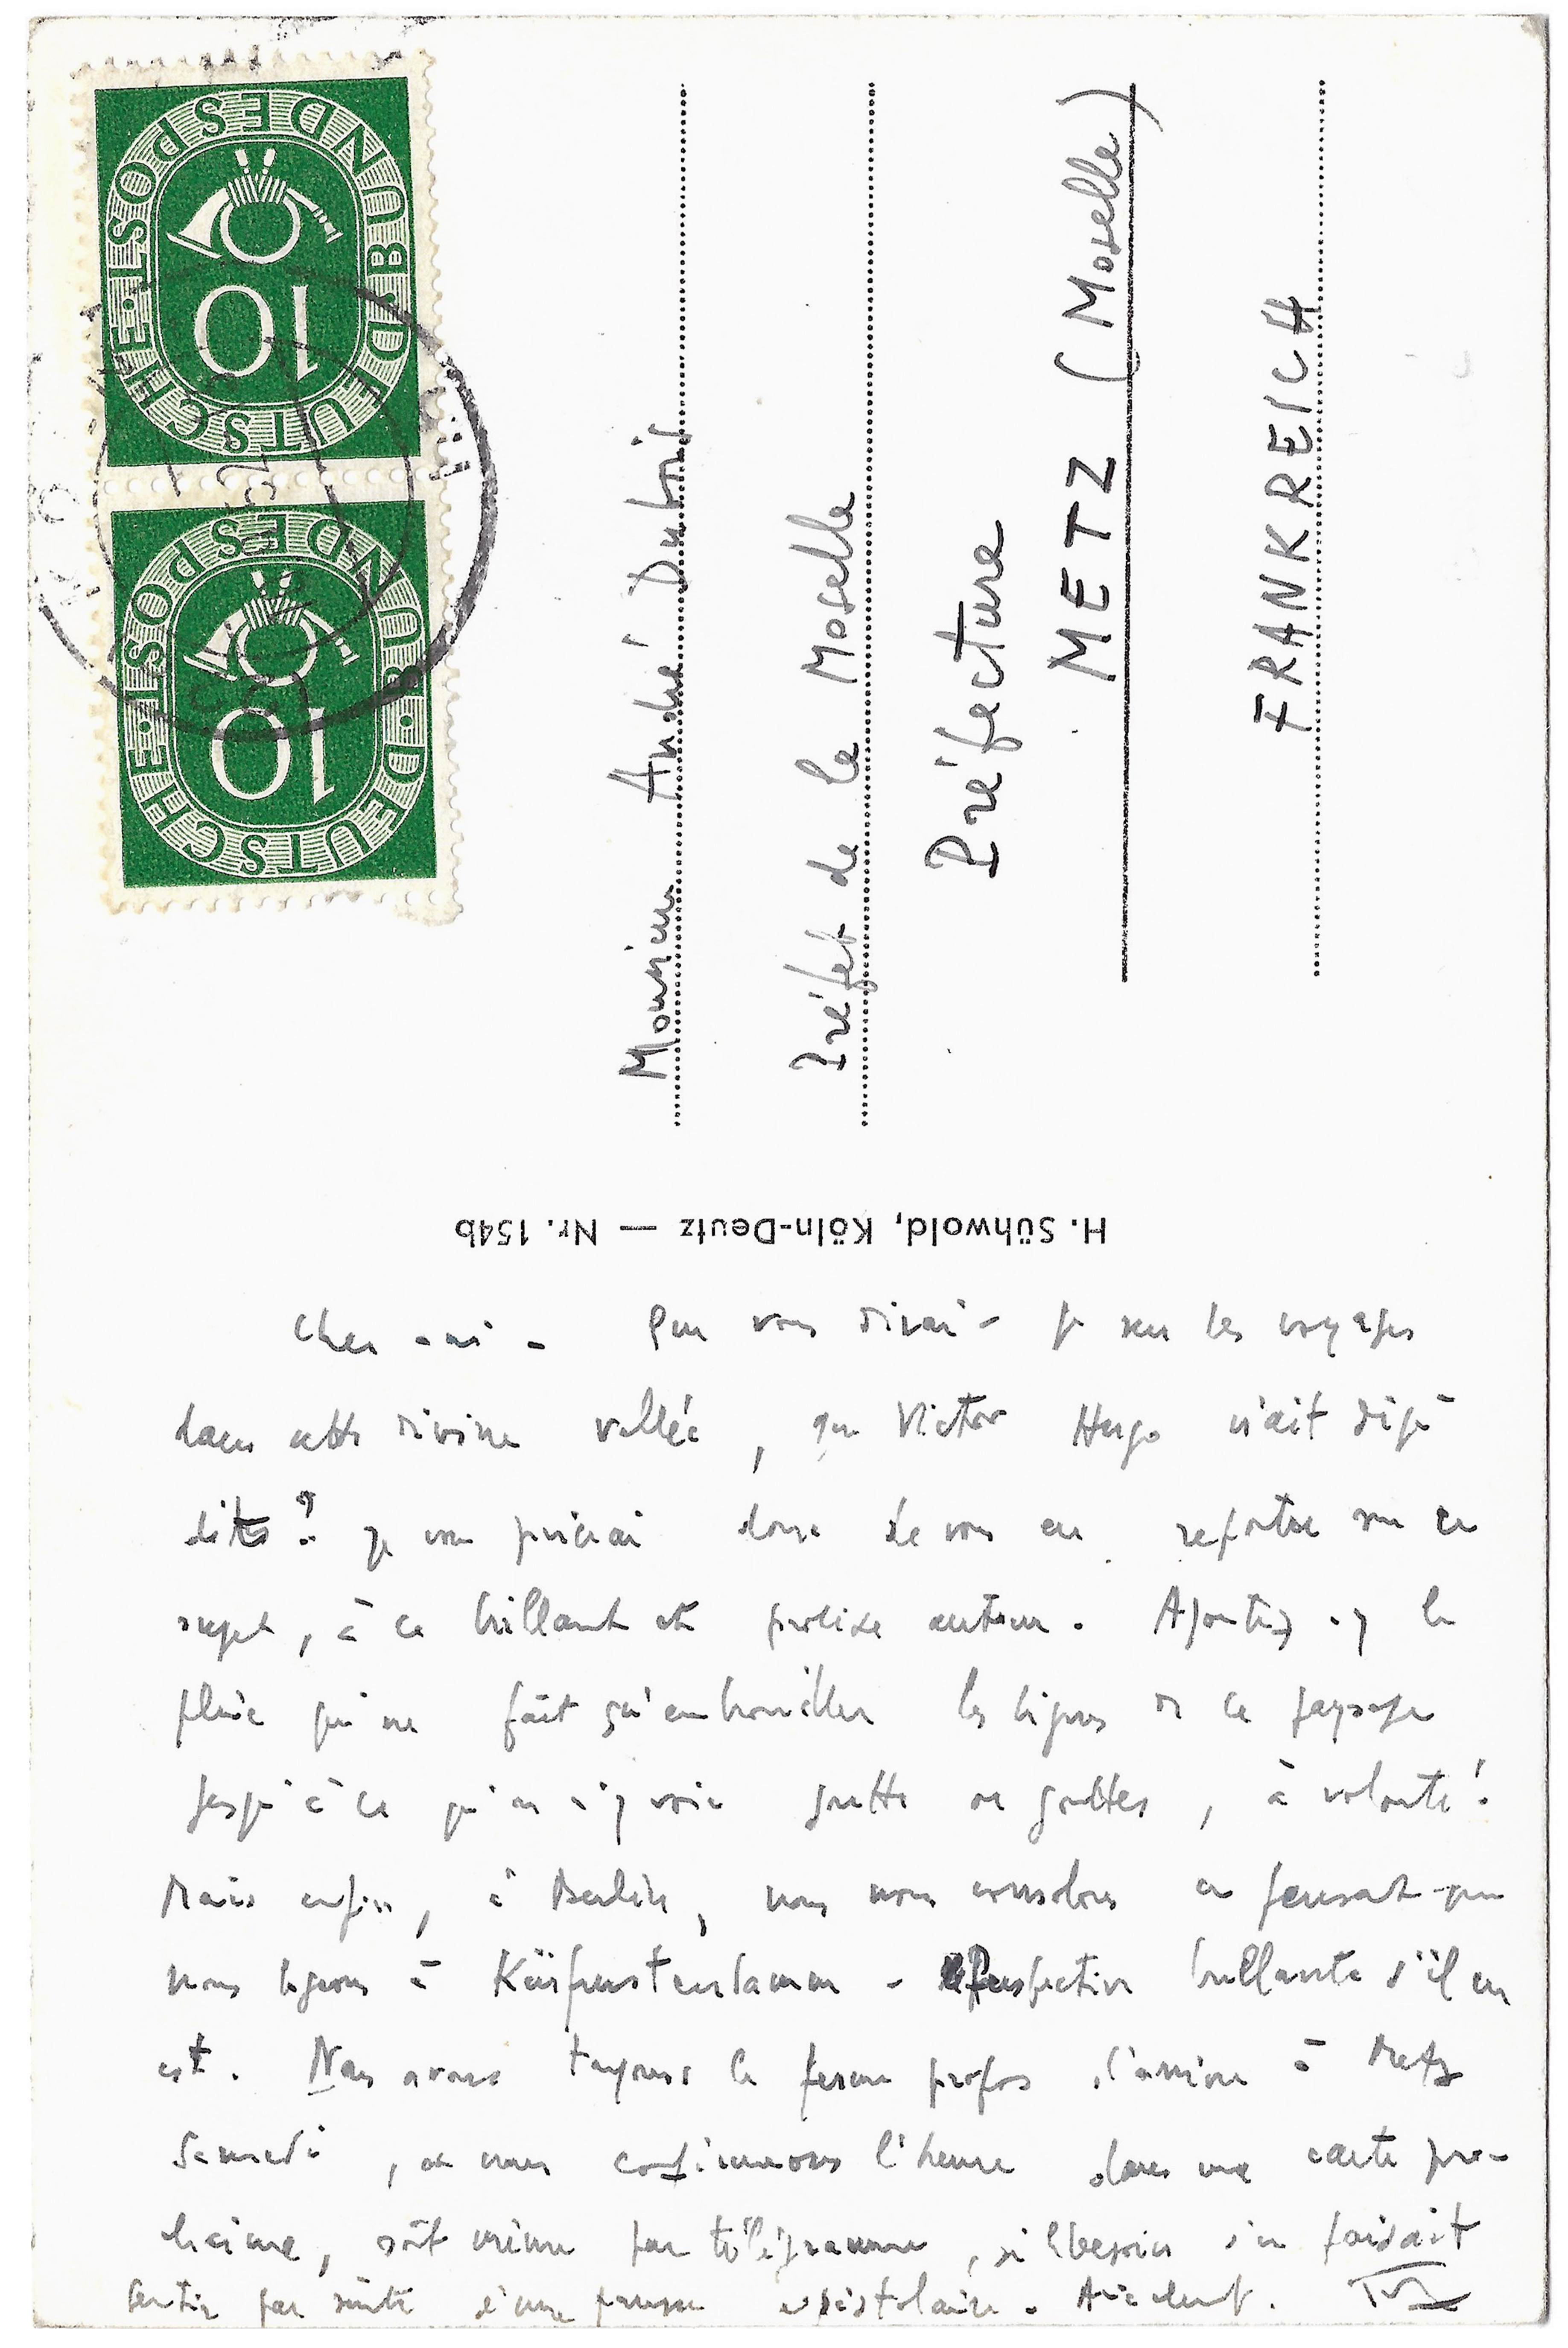 DEUTSCHE · BUNDESPOST ·
10
DEUTSCHE · BUNDESPOST ·
10
Monsieur André Dubois
Préfet de la Moselle
Préfecture
METZ (Moselle)
FRANKREICH
H. Sühwold, Köln-Deutz — Nr. 154b
Cher ami - Que vous dirai-je sur les voyages
dans cette divine vallée, que Victor Hugo n'ait déjà
dites? Je vous prierai donc de vous en reporter sur ce
sujet, à ce brillant et prolixe auteur. Ajoutez-y la
pluie qui ne fait qu'embrouiller les lignes de ce paysage
jusqu'à ce qu'on n'y voie goutte ou gouttes, à volonté!
Mais enfin, à Berlin, nous nous consolons en pensant que
nous logeons à Kürfurstendamm - Perspective brillante s'il en
est. Nous avons toujours le ferme propos d'arriver à Metz
Samedi, et nous confirmerons l'heure dans une carte pro-
chaine, soit même par télégramme, si besoin s'en faisait
sentir par suite d'une presse épistolaire.